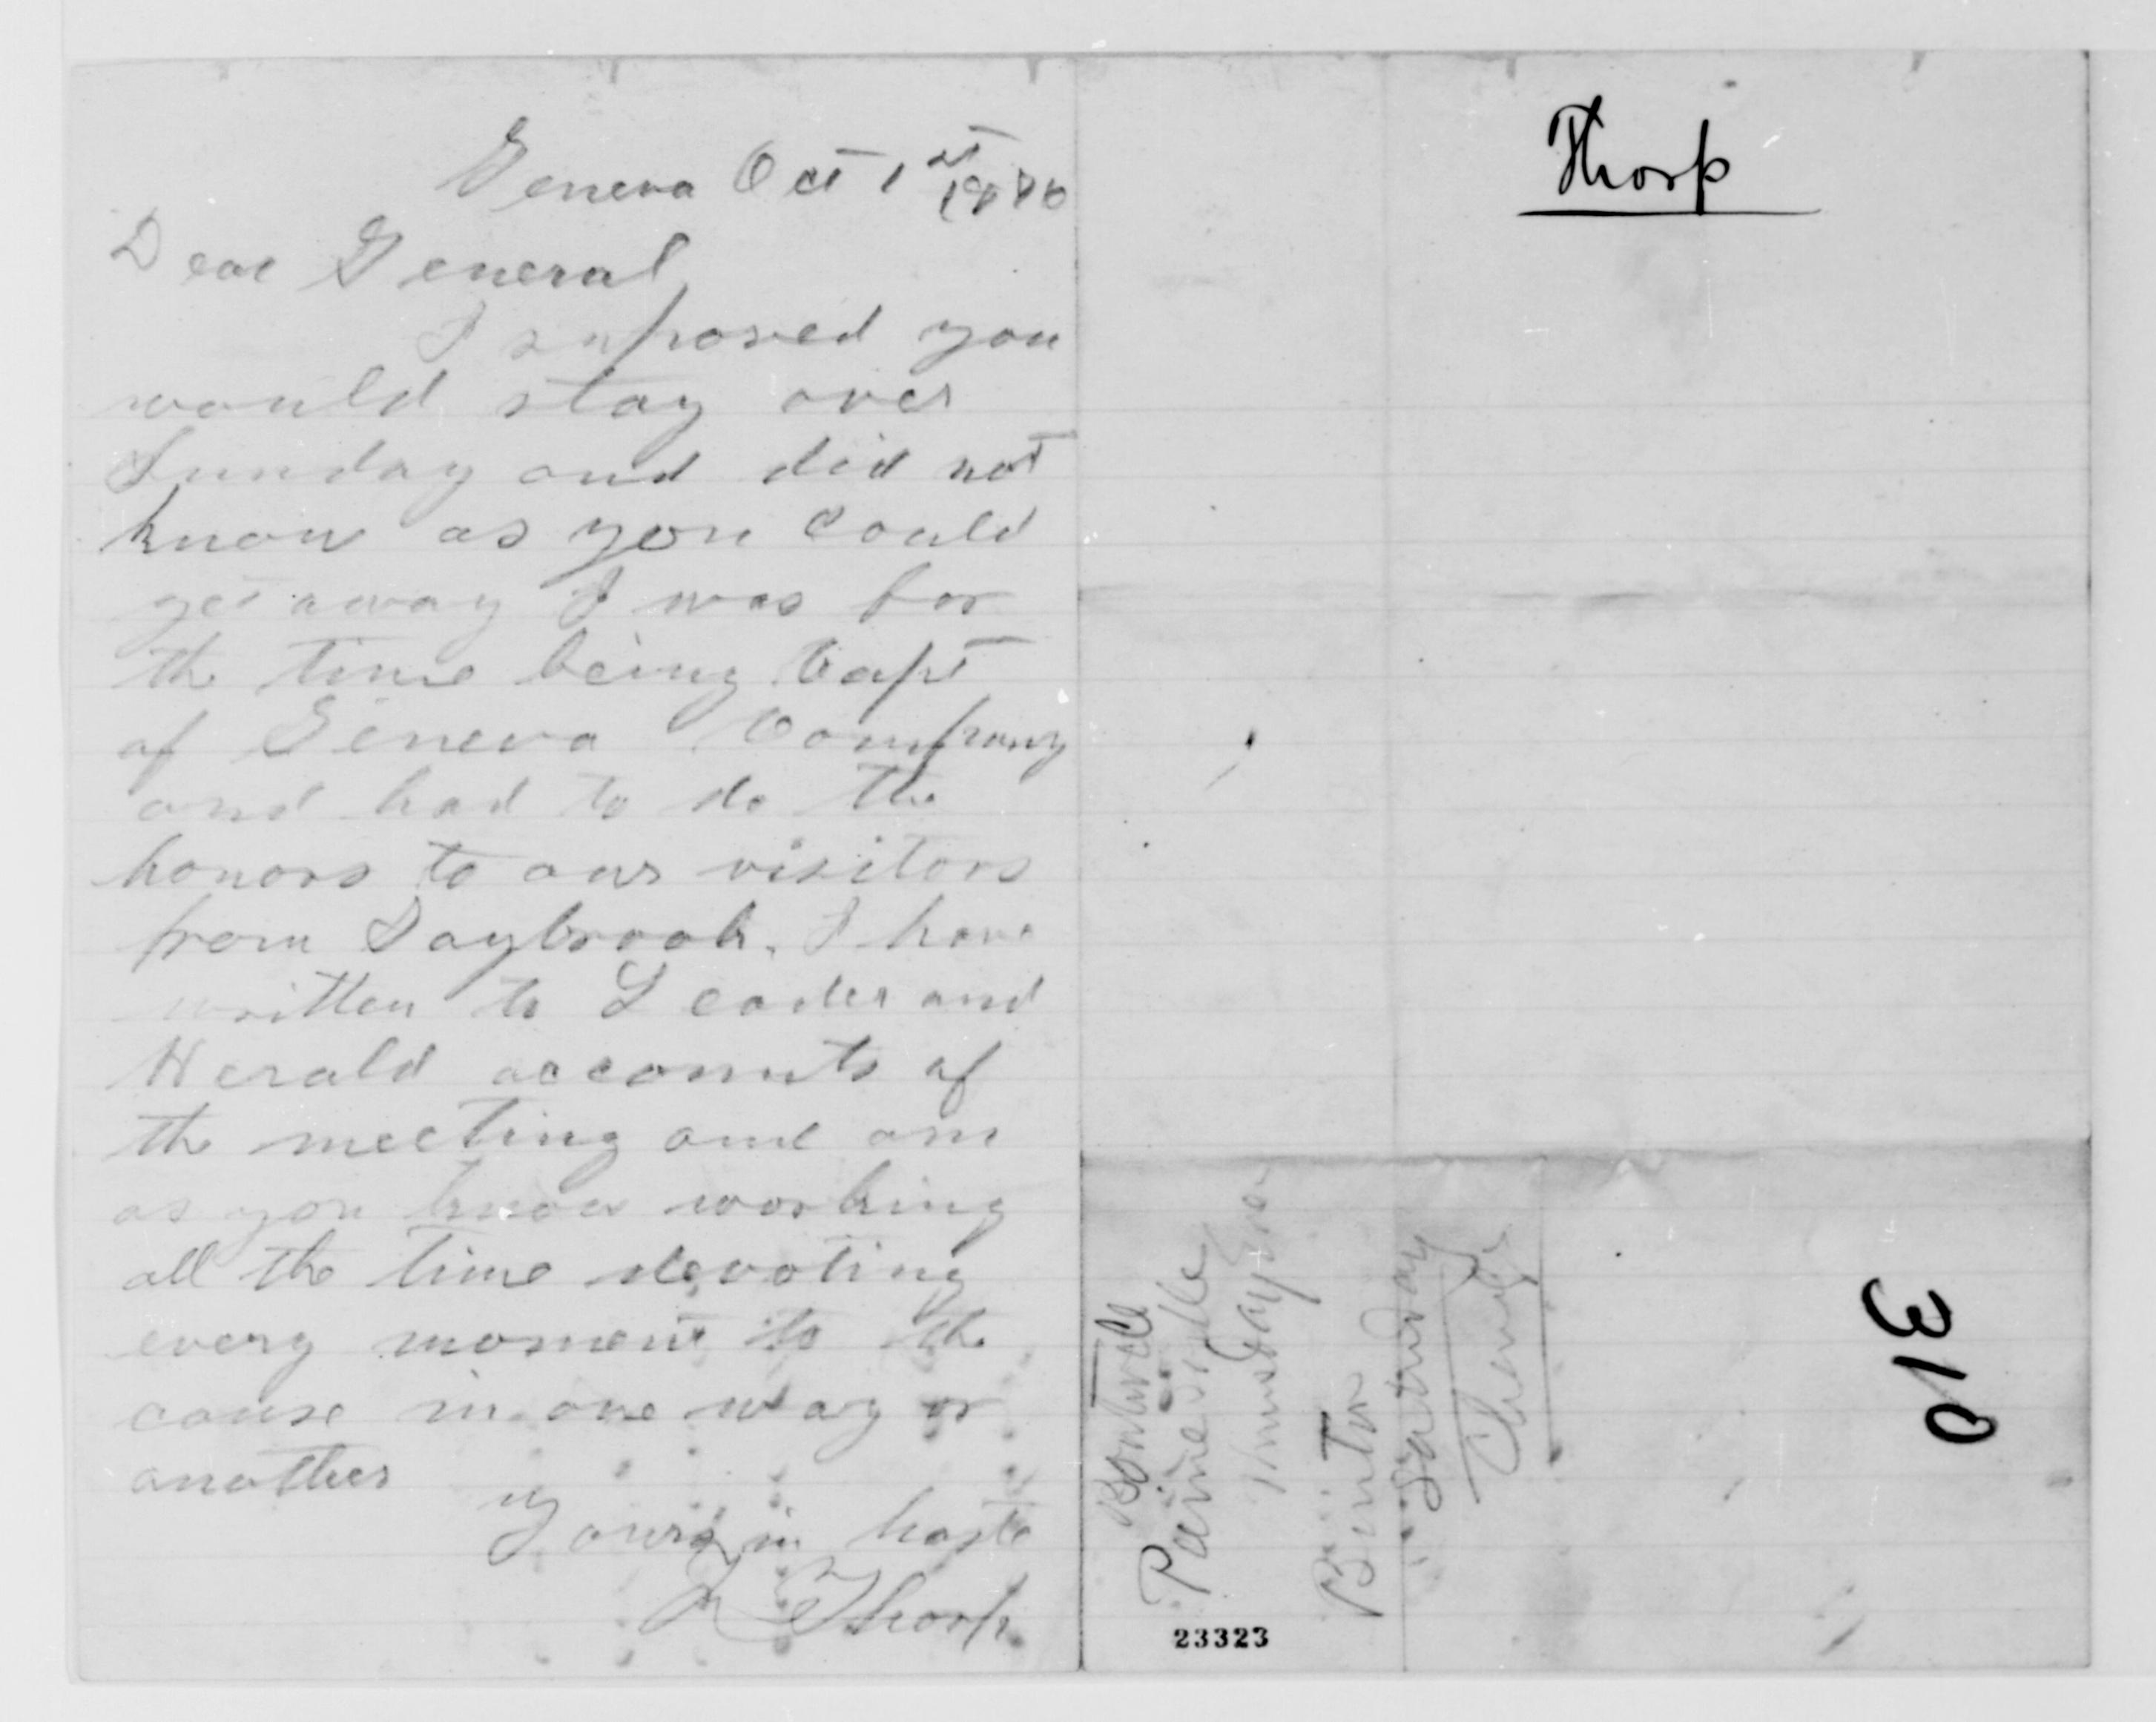 Geneva Oct 1st 1880
Dear General
I suposed you
would stay over
Sunday and did not
know as you could
get away I was for
the time being Capt
of Geneva Company
and had to do the
honors to our visitors
from Saybrook. I have
written to Leader and
Herald accounts of
the meeting and am
as you know working
all the time devoting
every moment to the
cause in one way or
another
Yours in haste
Thorp
Thorp
Painesville
Thursday
Saturday
310
23323